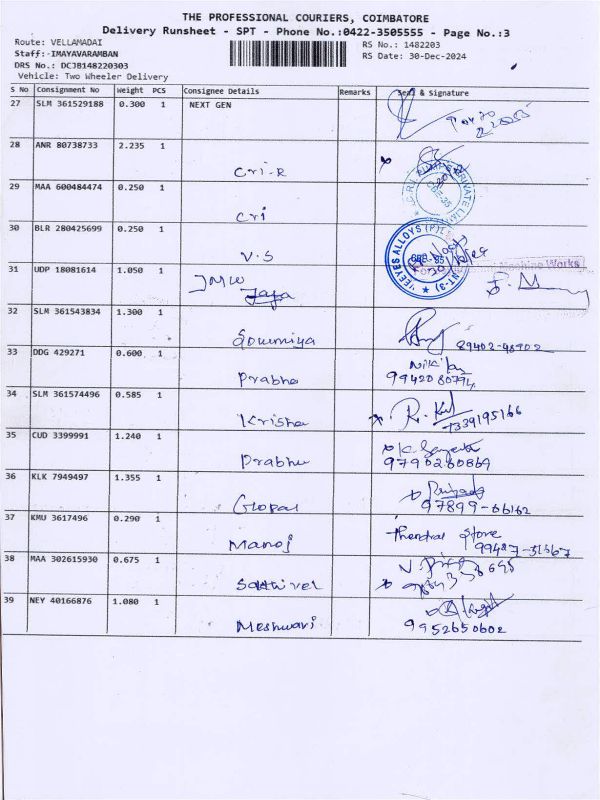 THE PROFESSIONAL COURIERS, COIMBATORE
Delivery Runsheet - SPT - Phone No.:0422-3505555 - Page No.:3
Route: VELLAMADAI
Staff:-IMAYAVARAMBAN
DRS No.: DCJB148220303
Vehicle: Two Wheeler Delivery
RS No.: 1482203
RS Date: 30-Dec-2024
S No Consignment No Weight PCS Consignee Details Remarks Seal & Signature
27 SLM 361529188 0.300 1 NEXT GEN
28 ANR 80738733 2.235 1
Cri-R
29 MAA 600484474 0.250 1
Cri
30 BLR 280425699 0.250 1
V.S
31 UDP 18081614 1.050 1 JMW
Machine Works
32 SLM 361543834 1.300 1
Sowmiya
33 DDG 429271 0.600 1
Prabhu
34 SLM 361574496 0.585 1
Krishna
7339195166
35 CUD 3399991 1.240 1
Prabhu 9790280869
36 KLK 7949497 1.355 1
Gopal 97899-66162
37 KMU 3617496 0.290 1
Manoj Thendral Store
99487-31667
38 MAA 302615930 0.675 1
Sakthivel
39 NEY 40166876 1.080 1
Meshwari 9952650602